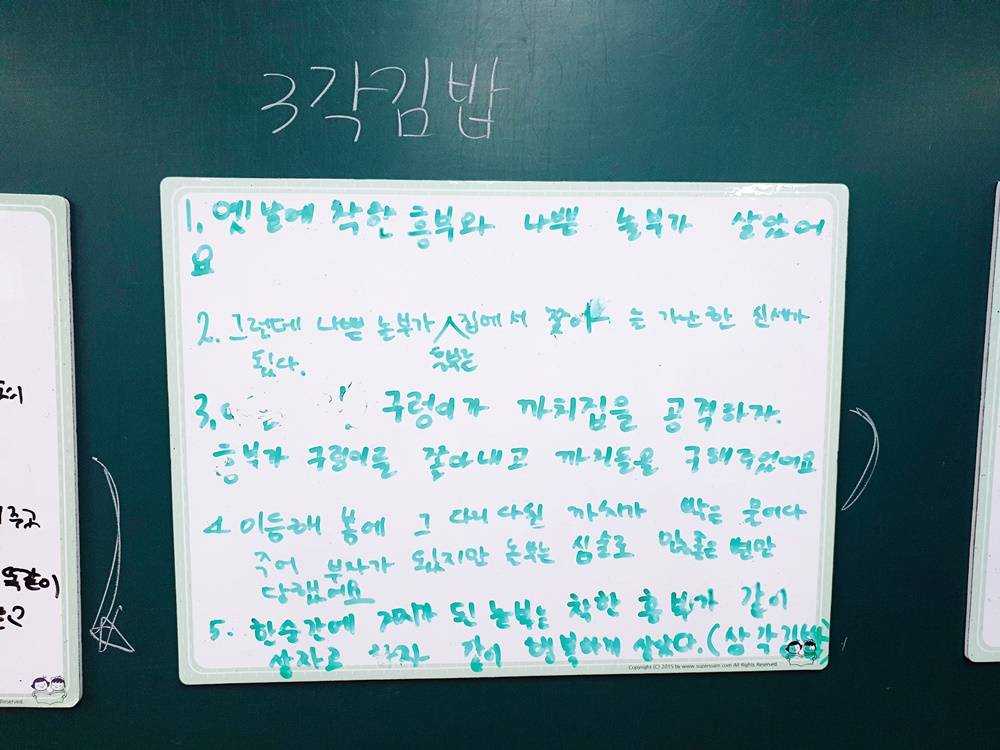 3각김밥
1. 옛날에 착한 흥부와 나쁜 놀부가 살았어
요
2. 그런데 나쁜 놀부가 흥부는 집에서 쫓아 는 가난한 신세가
됬다.
3. 구렁이가 까치집을 공격하자.
흥부가 구렁이를 쫓아내고 까치들을 구해주었어요
4 이듬해 봄에 그 까치가 박을 물어다
주어 부자가 됬지만 놀부는 심술로 번만
당했어요
5. 한순간에 거지가 된 놀부는 착한 흥부가 같이
살자고 같이 행복하게 살았다. (삼각김밥)
Copyright (C) 2015 by www.supersaim.com All Rights Reserved.
주고
똑같이